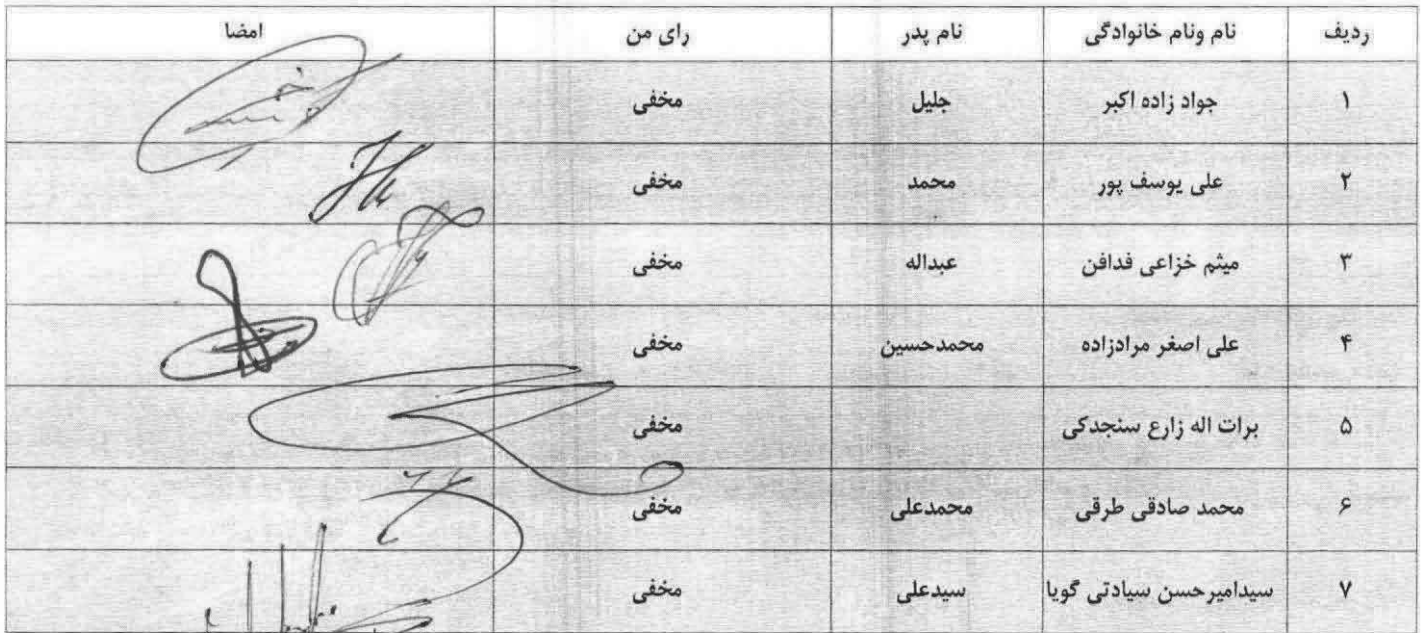 ردیف نام ونام خانوادگی نام پدر رای من امضا
۱ جواد زاده اکبر جلیل مخفی
۲ علی یوسف پور محمد مخفی
۳ میثم خزاعی فدافن عبداله مخفی
۴ علی اصغر مرادزاده محمدحسین مخفی
۵ برات اله زارع سنجدکی مخفی
۶ محمد صادقی طرقی محمدعلی مخفی
۷ سیدامیرحسن سیادتی گویا سیدعلی مخفی